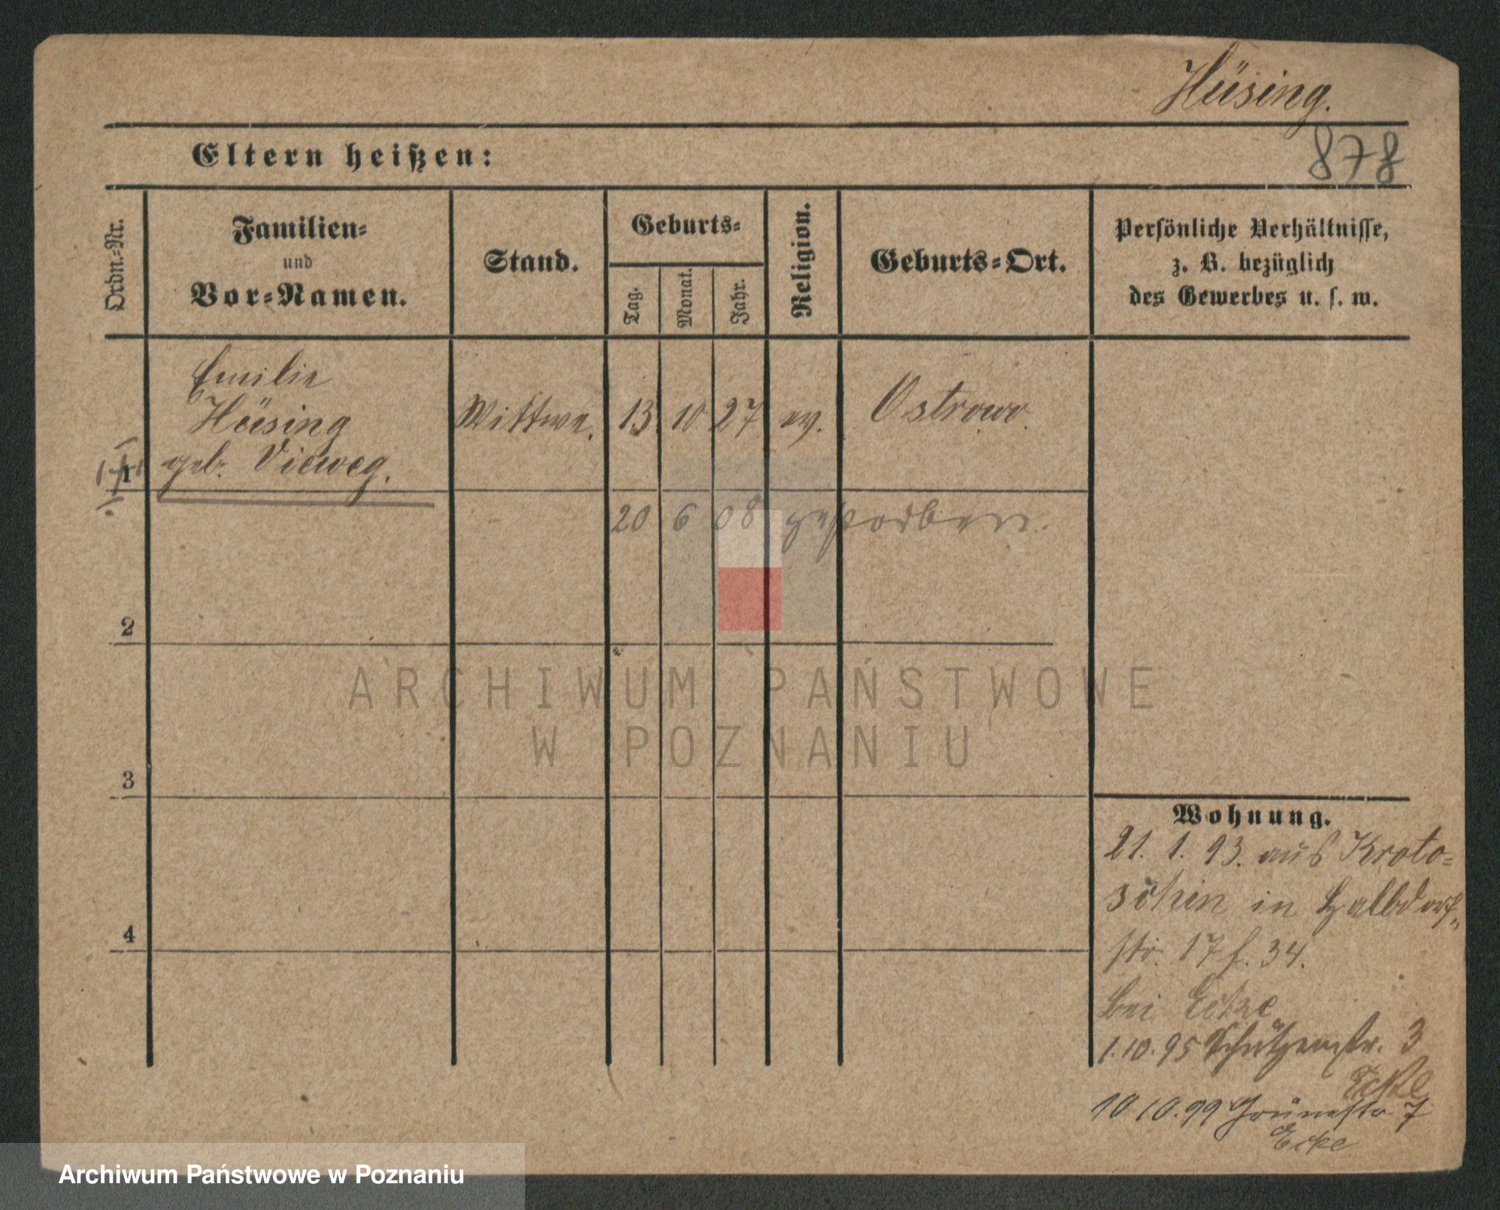 Hüsing.
878
Eltern heißen:
Ordn.-Nr.
Familien-
und
Vor-Namen.
Stand.
Geburts-
Tag.
Monat.
Jahr.
Religion.
Geburts-Ort.
Persönliche Verhältnisse,
z. B. bezüglich
des Gewerbes u. s. w.
Emilie
Hüsing
geb. Vieweg.
1
Wittwe. 13 10 27 ev. Ostrowo.
20 6 08 gestorben.
2
ARCHIWUM PAŃSTWOWE
W POZNANIU
3
4
Wohnung.
21. 1. 93. aus Kroto=
schin in Halbdorf=
str. 17 f. 34.
bei Ecke
1.10.95 Schützenstr. 3
Ecke
10 10.99 Grünestr 7
Ecke
Archiwum Państwowe w Poznaniu